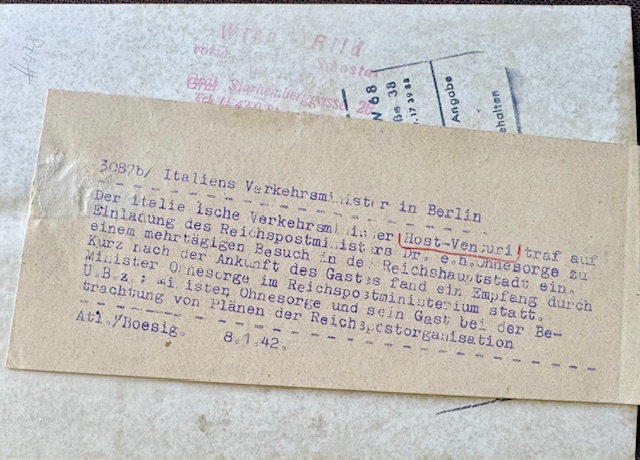 Wien - Bild
Graf Starhemberggasse 26
N 68
38
17 39 88
Angabe
ehalten
3087b/ Italiens Verkehrsminister in Berlin
Der italie ische Verkehrsminister Host-Venturi traf auf
Einladung des Reichspostministers Dr. e.h.Ohnesorge zu
einem mehrtägigen Besuch in der Reichshauptstadt ein.
Kurz nach der Ankunft des Gastes fand ein Empfang durch
Minister Ohnesorge im Reichspostministerium statt.
U.B.z.: Mi isten Ohnesorge und sein Gast bei der Be-
trachtung von Plänen der Reichspostorganisation
Atl./Boesig. 8.1.42.